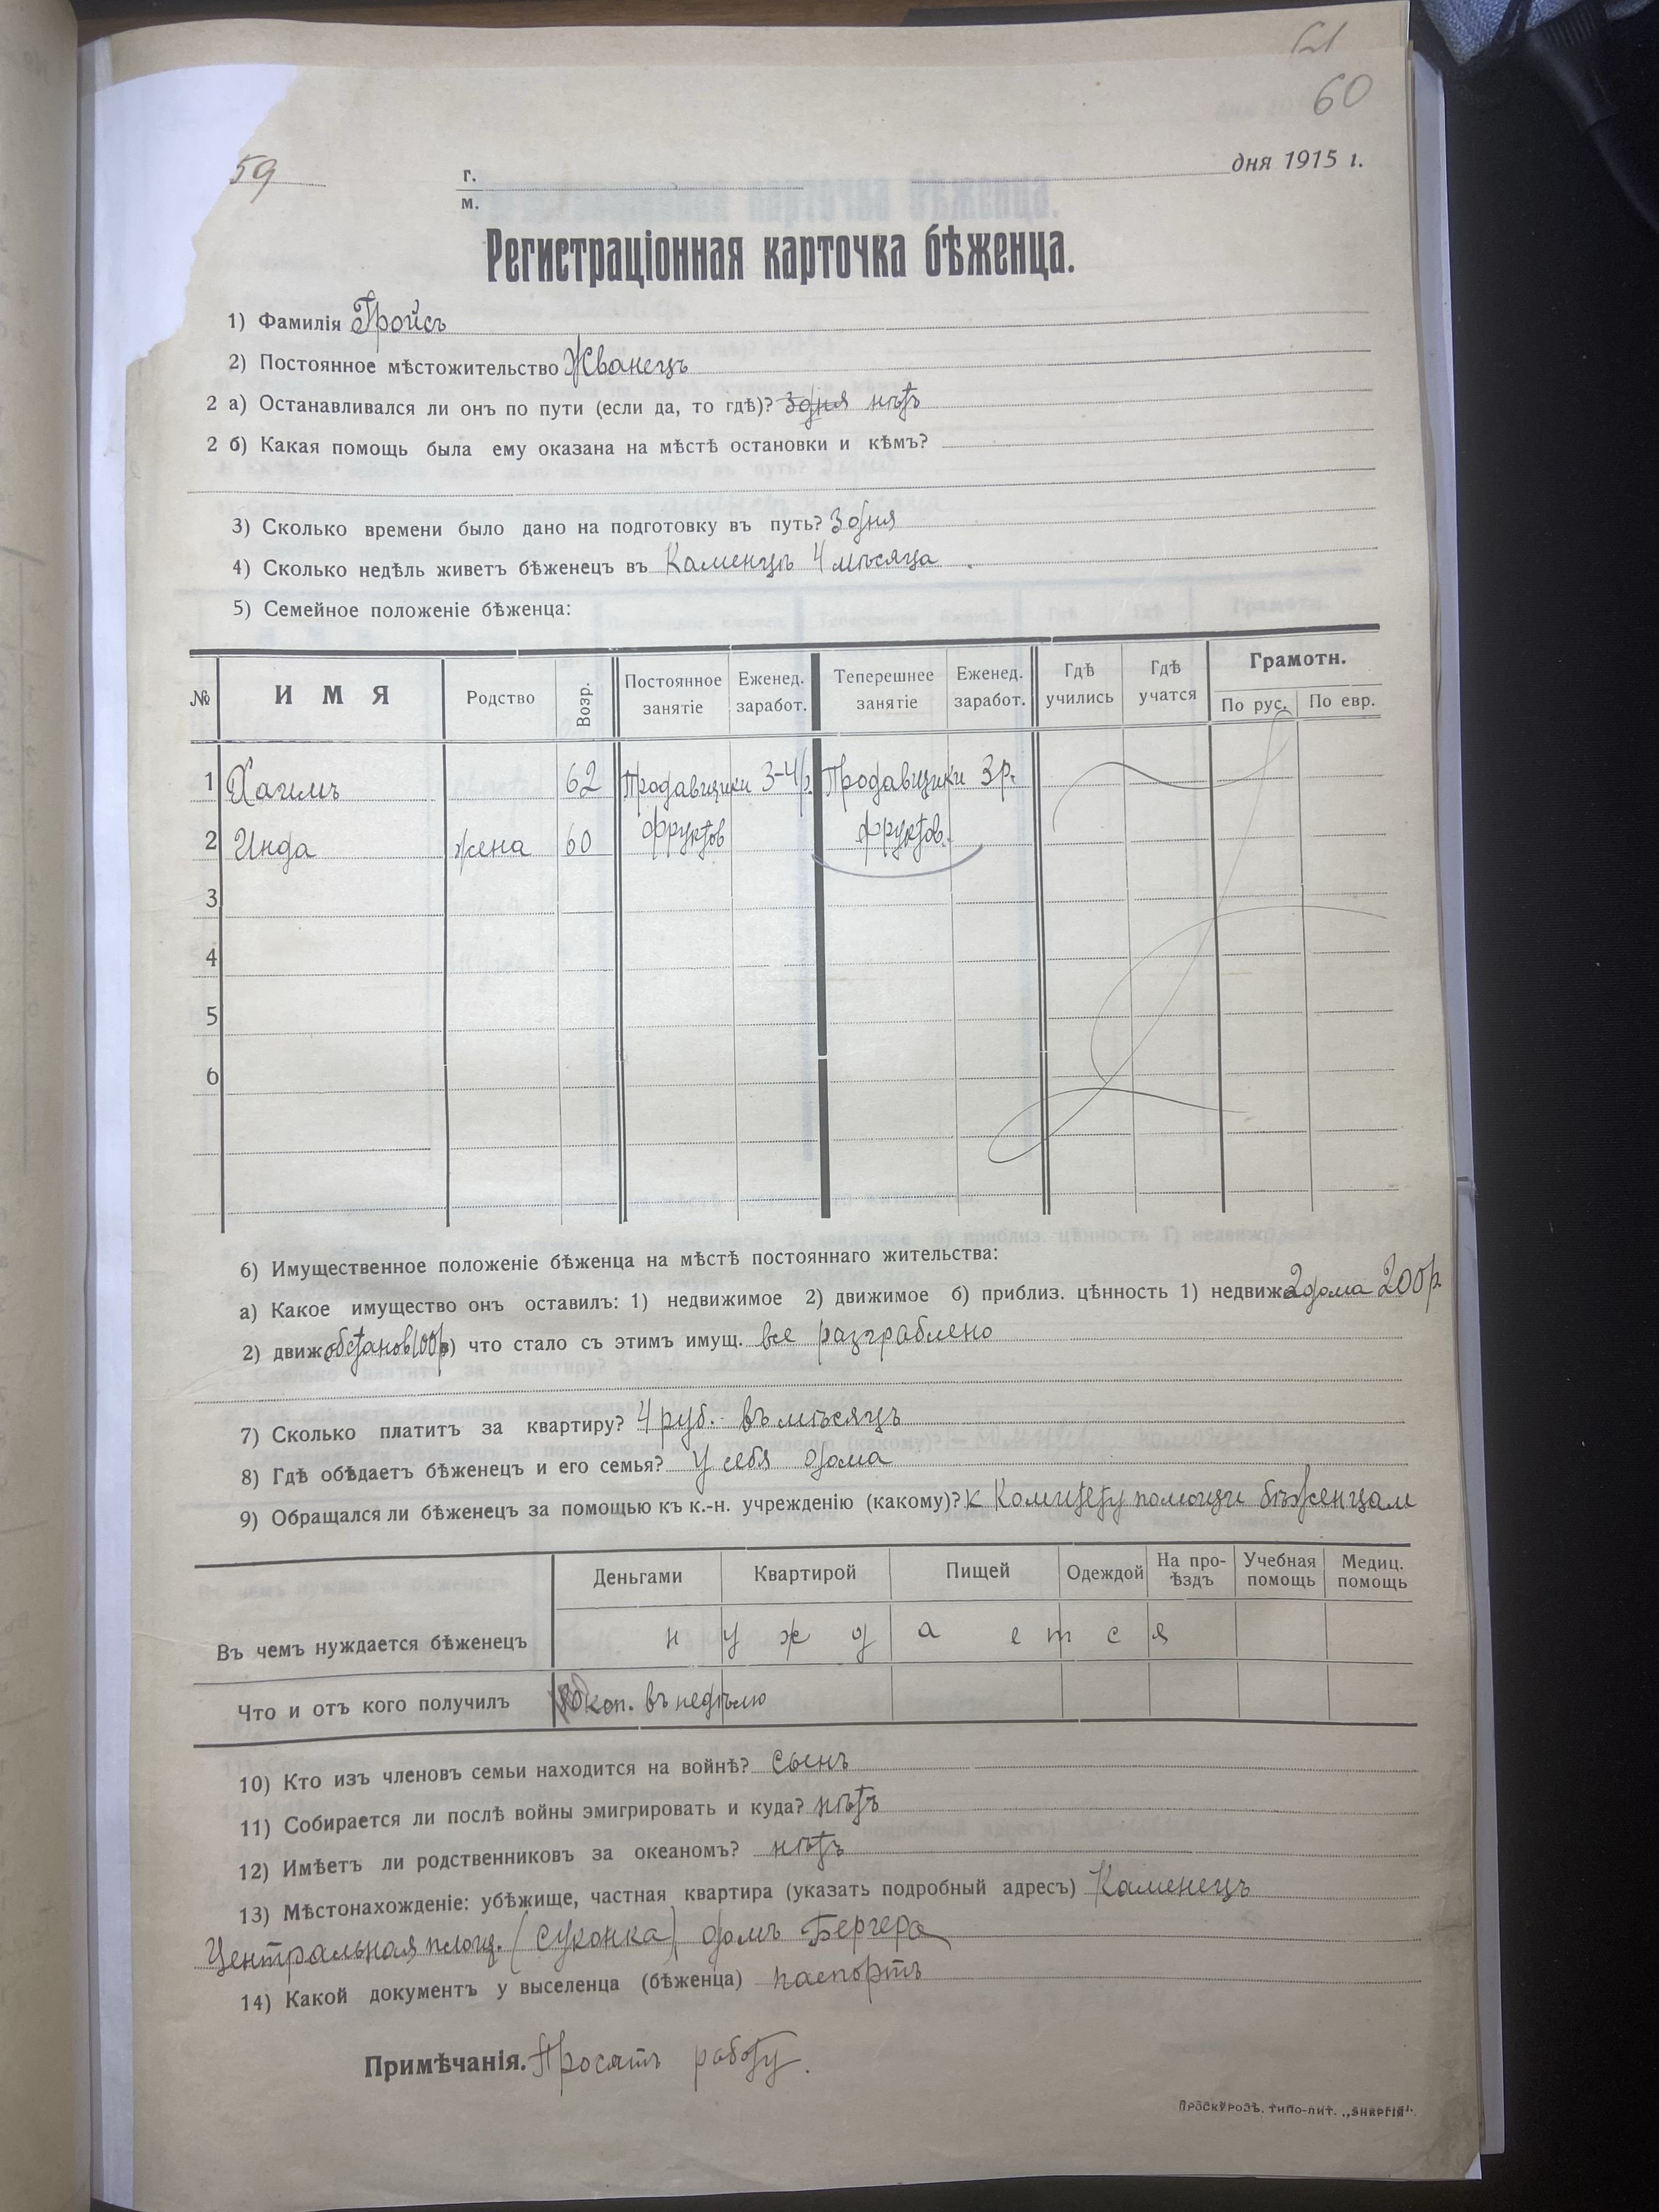 60
59
г.
м.
дня 1915 г.
Регистраціонная карточка бѣженца.
1) Фамилія Гройсъ
2) Постоянное мѣстожительство Жванецъ
2 а) Останавливался ли онъ по пути (если да, то гдѣ)? 3 дня нѣтъ
2 б) Какая помощь была ему оказана на мѣстѣ остановки и кѣмъ?
3) Сколько времени было дано на подготовку въ путь? 3 дня
4) Сколько недѣль живетъ бѣженецъ въ Каменцѣ 4 мѣсяца
5) Семейное положеніе бѣженца:
№ ИМЯ Родство Возр. Постоянное занятіе Еженед. заработ. Теперешнее занятіе Еженед. заработ. Гдѣ учились Гдѣ учатся Грамотн. По рус. По евр.
1 Хаимъ 62 Продавщики 3-4р. Продавщики 3 р.
2 Инда жена 60 фруктов фруктов.
3
4
5
6
6) Имущественное положеніе бѣженца на мѣстѣ постояннаго жительства:
а) Какое имущество онъ оставилъ: 1) недвижимое 2) движимое б) приблиз. цѣнность 1) недвиж. 2 дома 200 р.
2) движ. обстанов 100 р в) что стало съ этимъ имущ. все разграблено
7) Сколько платитъ за квартиру? 4 руб. въ мѣсяцъ
8) Гдѣ обѣдаетъ бѣженецъ и его семья? У себя дома
9) Обращался ли бѣженецъ за помощью къ к.-н. учрежденію (какому)? к Комитету помощи бѣженцам
Деньгами Квартирой Пищей Одеждой На про-ѣздъ Учебная помощь Медиц. помощь
Въ чемъ нуждается бѣженецъ нуждается
Что и отъ кого получилъ коп. въ недѣлю
10) Кто изъ членовъ семьи находится на войнѣ? сынъ
11) Собирается ли послѣ войны эмигрировать и куда? нѣтъ
12) Имѣетъ ли родственниковъ за океаномъ? нѣтъ
13) Мѣстонахожденіе: убѣжище, частная квартира (указать подробный адресъ) Каменецъ
Центральная площ. (Суконка) домъ Бергера
14) Какой документъ у выселенца (бѣженца) паспортъ
Примѣчанія. Просятъ работу.
Проскуровъ, типо-лит. „Энергія".